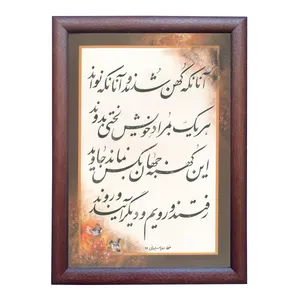 آنانکه کهن شدند و آنانکه نوند
هر یک بمراد خویش لختی بدوند
این کهنه جهان بکس نماند جاوید
رفتند و رویم و دیگر آیند و روند